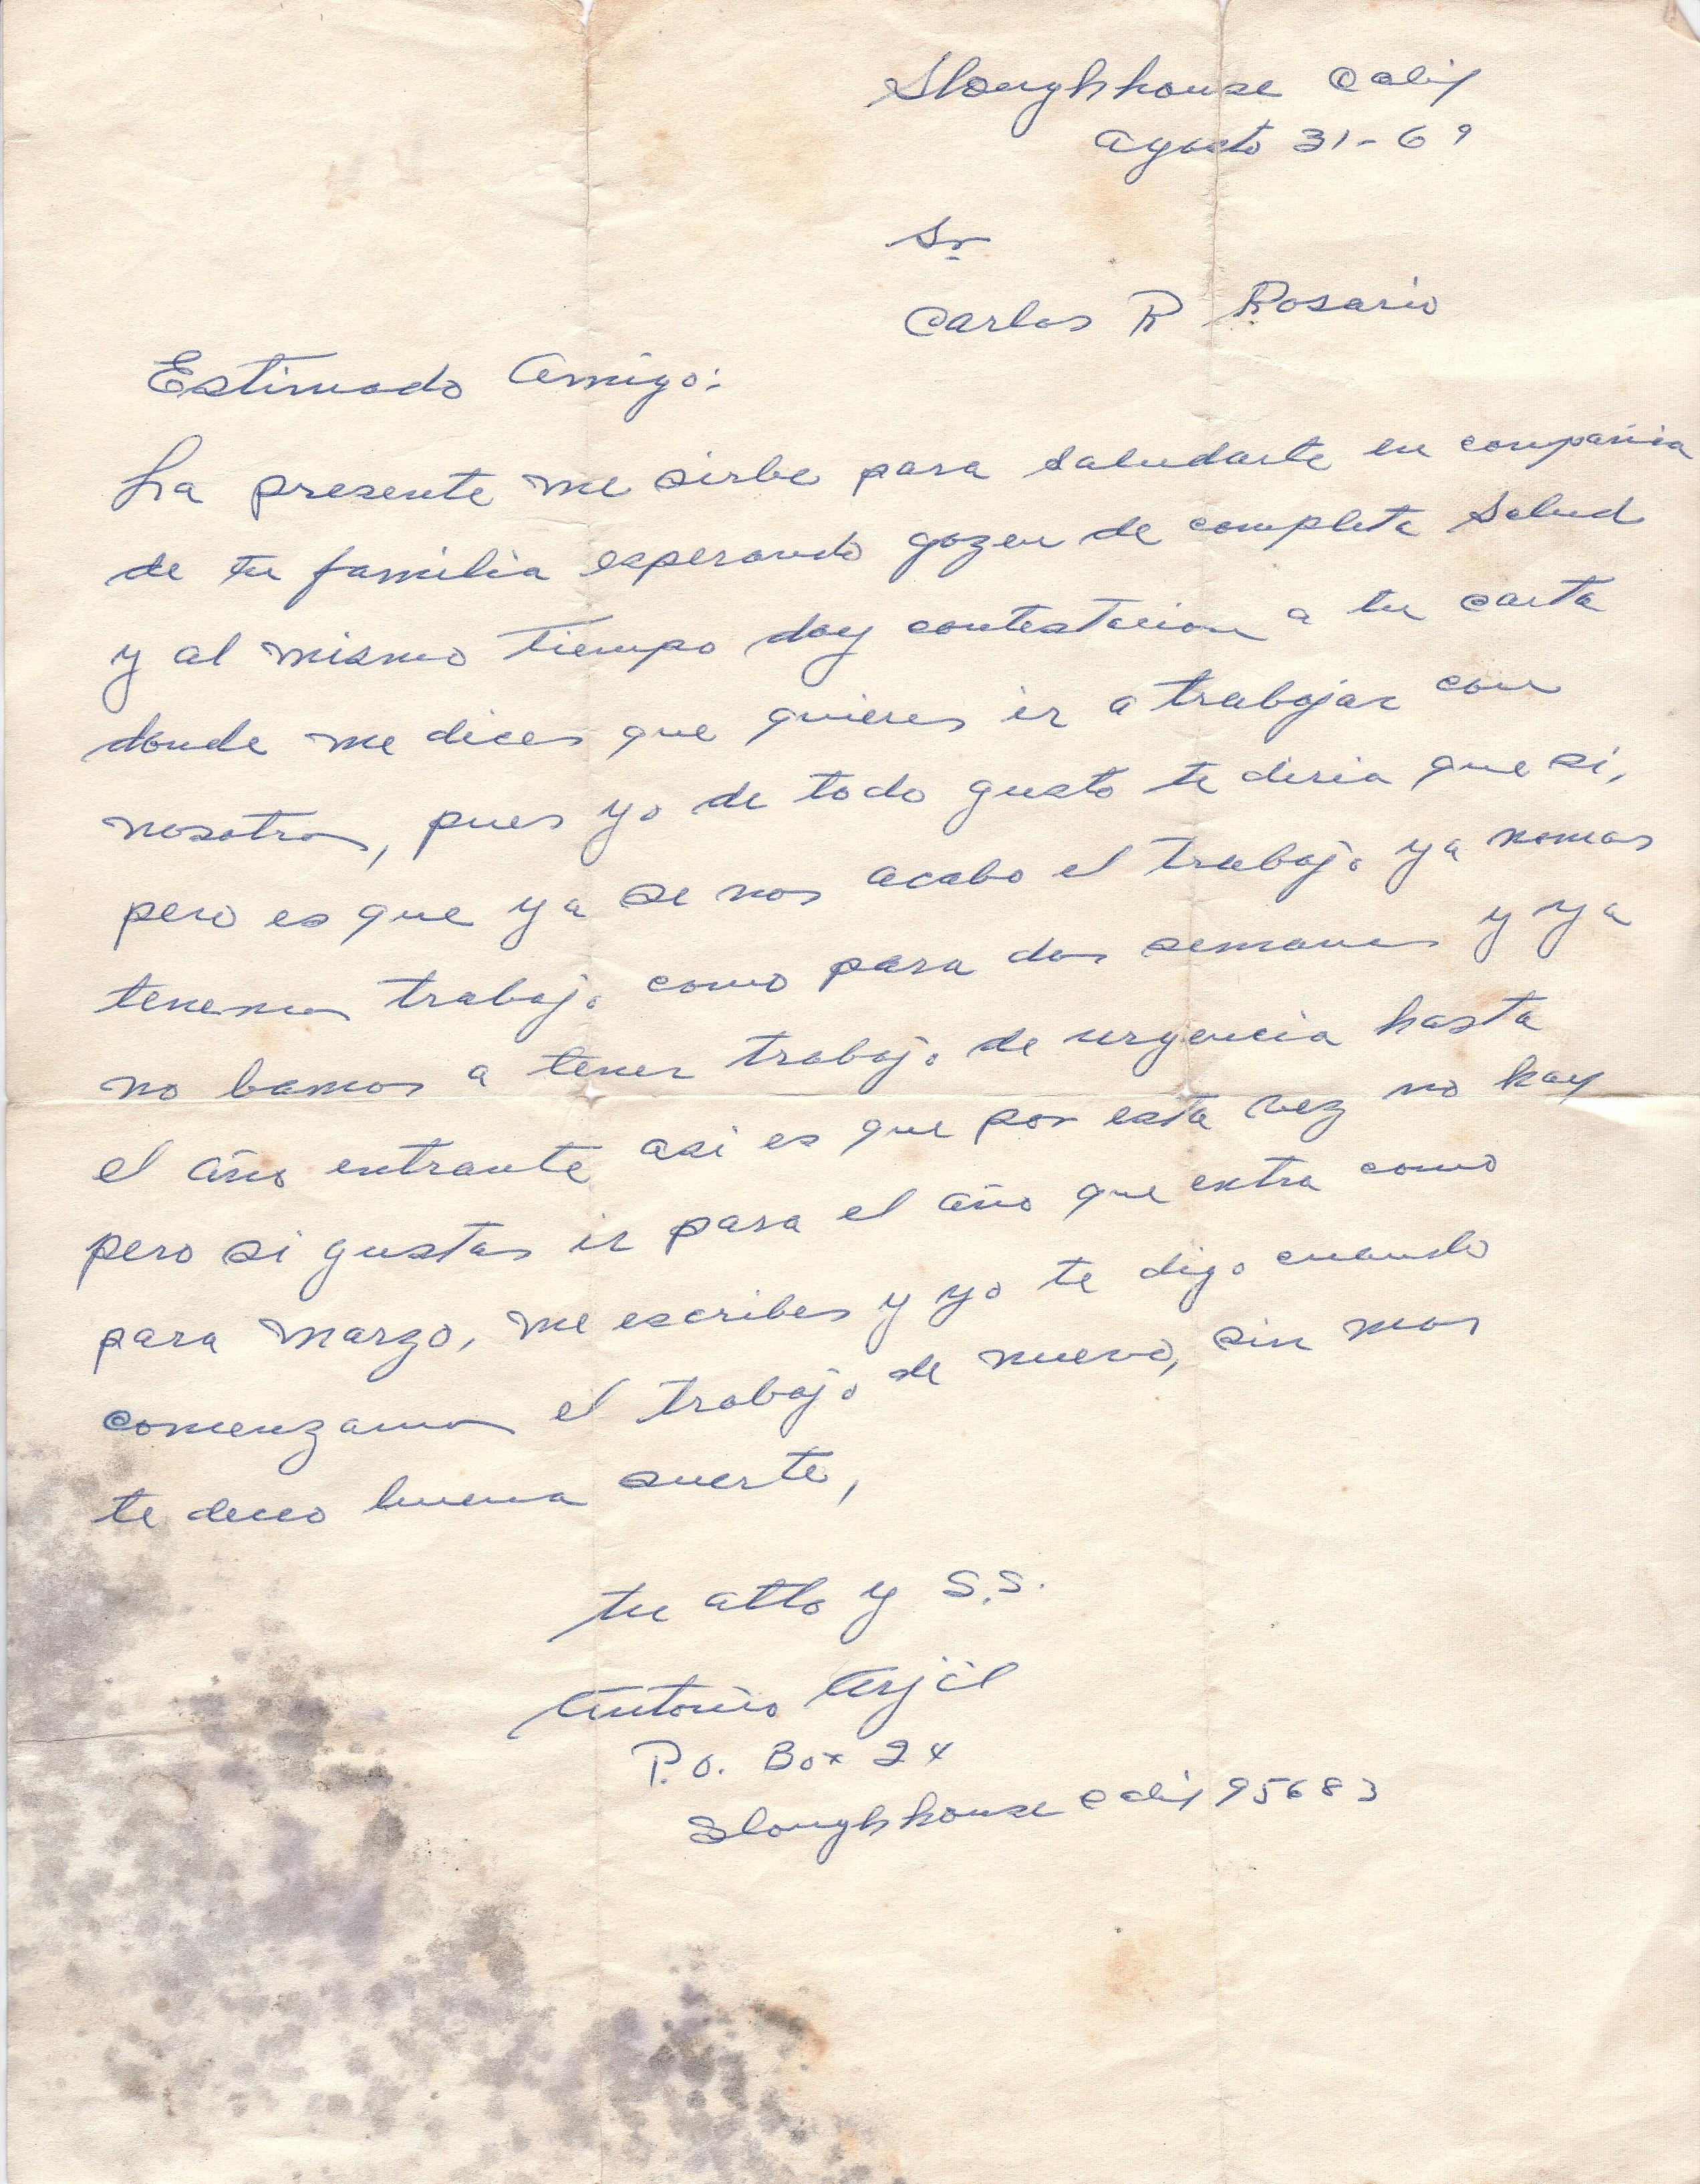 Sloughhouse Calif
Agosto 31-69
Sr
Carlos R Rosario
Estimado Amigo:
La presente me sirbe para saludarte en compañia
de tu familia esperando gozen de completa Salud
y al mismo tiempo doy contestacion a tu carta
donde me dices que quieres ir a trabajar con
nosotros, pues yo de todo gusto te diria que si,
pero es que ya se nos acabo el trabajo ya nomas
tenemos trabajo como para dos semanas y ya
no bamos a tener trabajo de urgencia hasta
el año entrante asi es que por esta vez no hay
pero si gustas ir para el año que entra como
para marzo, me escribes y yo te digo cuando
comenzamos el trabajo de nuevo, sin mas
te deceo buena suerte,
tu atto y S.S.
Antonio Arjil
P.O. Box 24
Sloughhouse Calif 95683